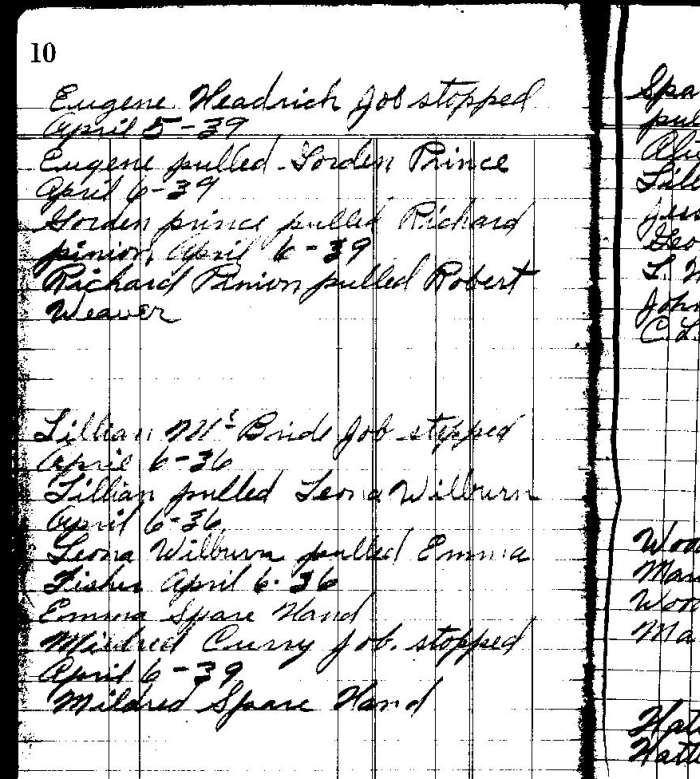 10
Eugene Headrich Job stopped
April 5-39
Eugene pulled Gorden Prince
April 6-39
Gorden prince pulled Richard
pinion April 6-39
Richard Pinion pulled Robert
Weaver
Lillian Mc Bride Job stopped
April 6-36
Lillian pulled Leona Wilburn
April 6-36
Leona Wilburn pulled Emma
Fisher April 6-36
Emma Spare Hand
Mildred Curry Job. stopped
April 6-39
Mildred Spare Hand
Spa
pul
Lill
Geo
John
C. L.
Woo
Man
Woo
Ma
Hatt